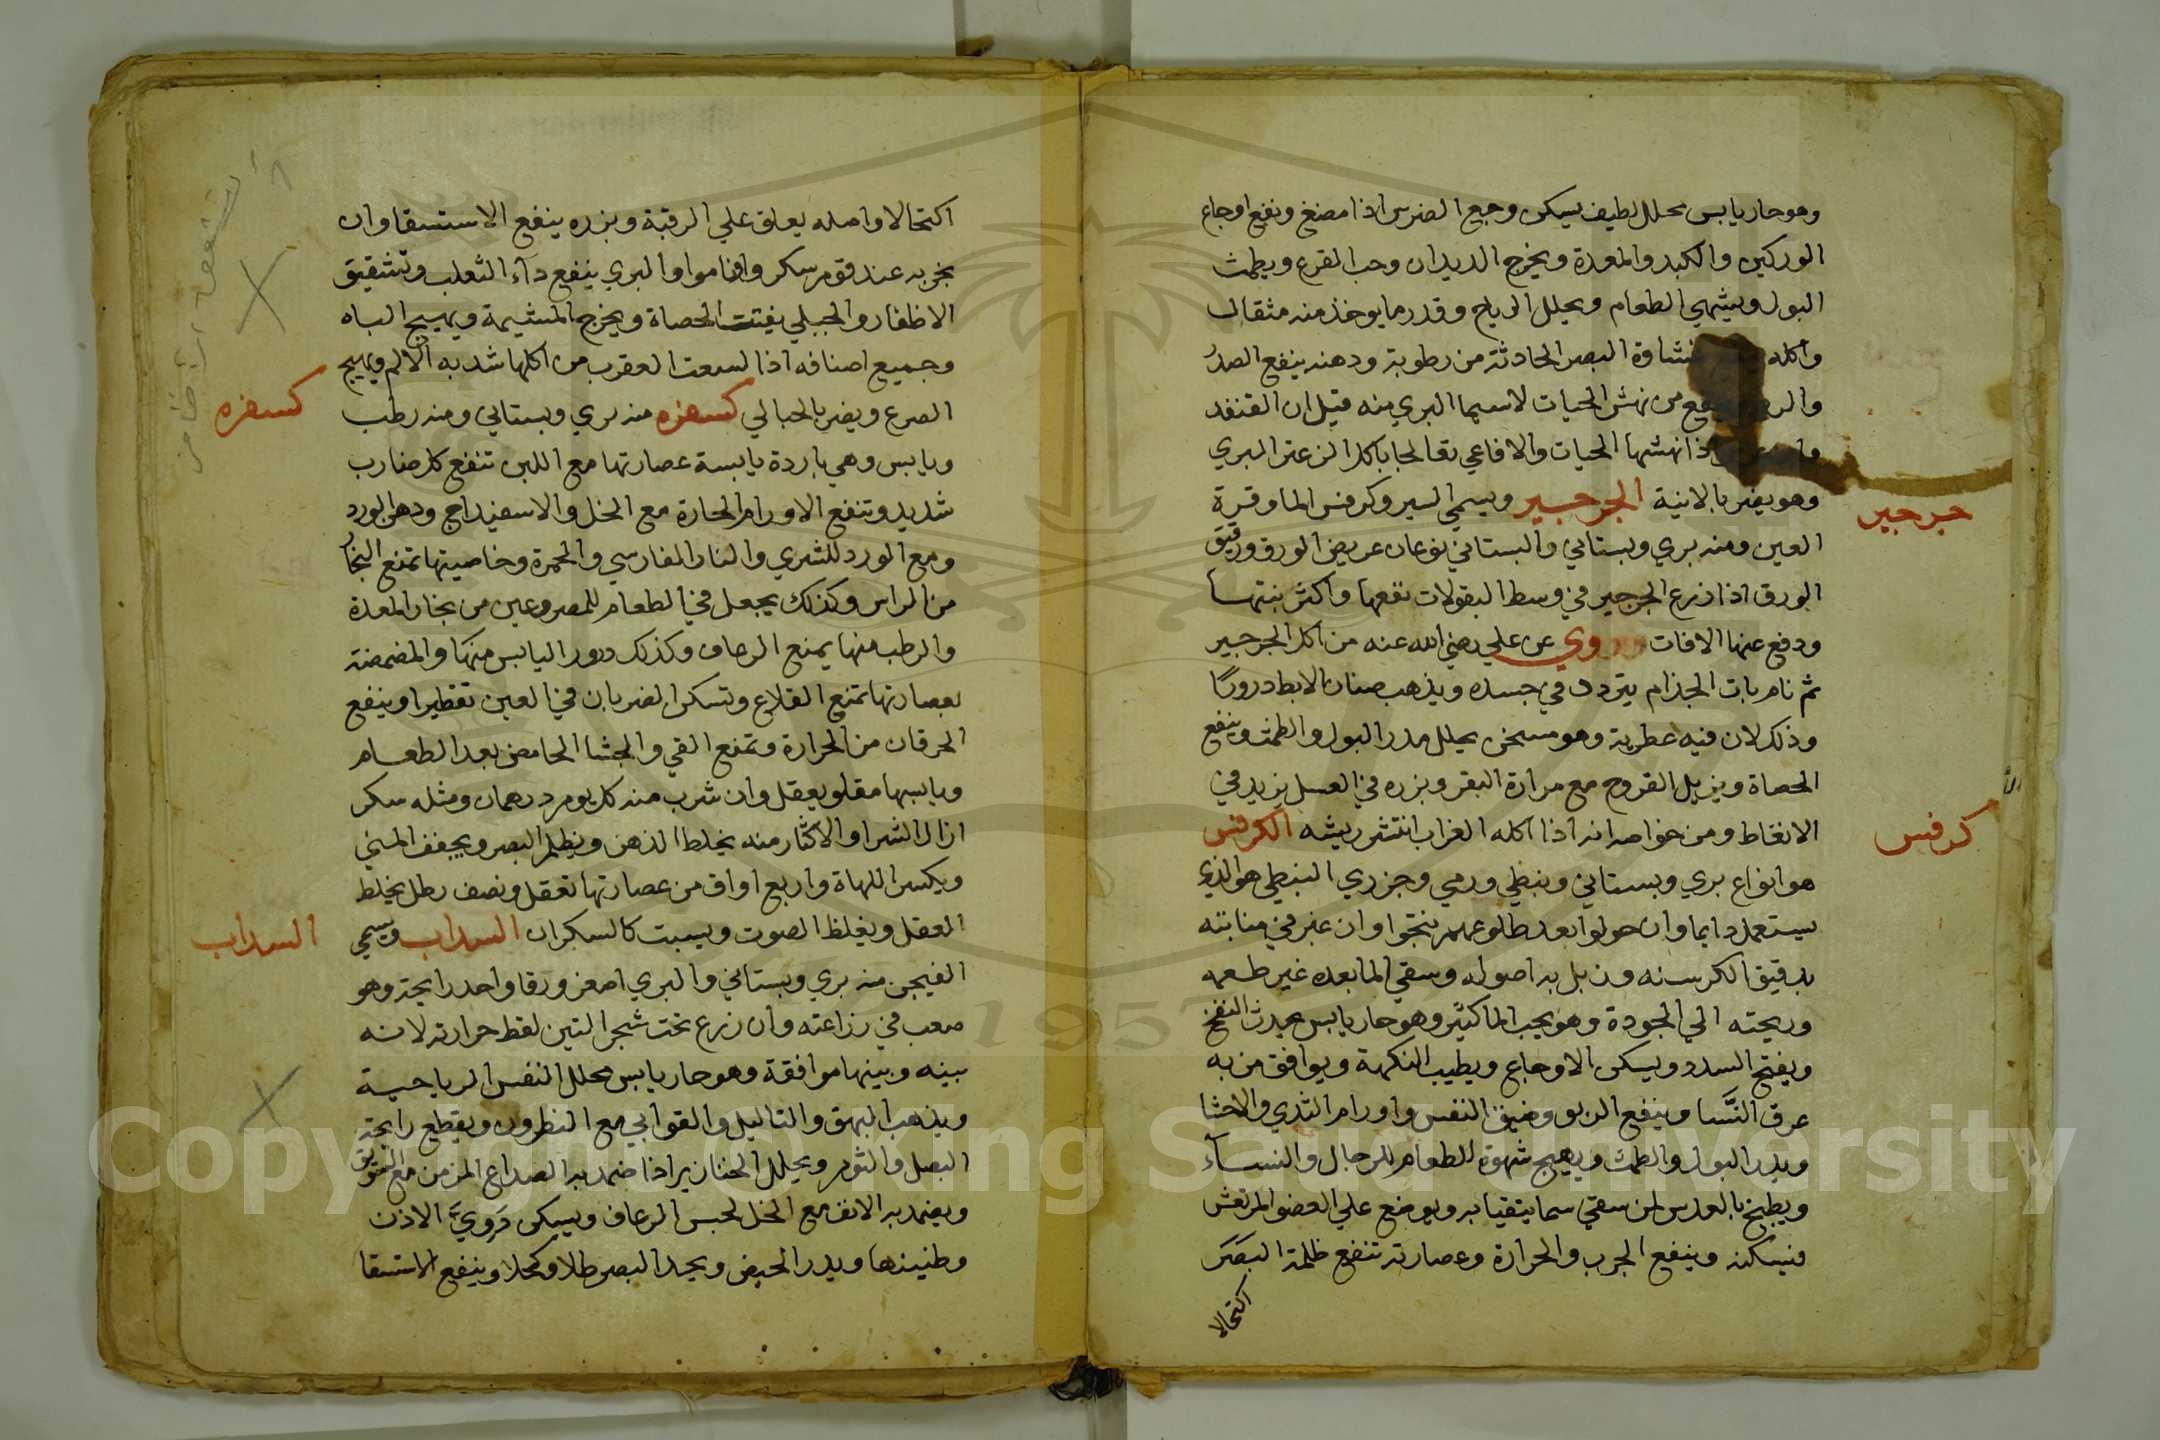 وهو حار يابس محلل لطيف يسكن وجع الضرس اذا مضغ ونفع اوجاع
الوركين والكبد والمعدة ويخرج الديدان وحب القرع ويطمث
البول ويشهي الطعام ويحلل الرياح وقدر ما يوخذ منه مثقال
واكله غشاوة البصر الحادثة من رطوبة ودهنه ينفع الصدر
من نهش الحيات لاسيما البري منه قيل ان القنفد
اذا نهشها الحيات والافاعي تعالجا باكل الزعتر البري
وهو يضر بالانية الجرجير ويسمي السير وكرفس الما وقرة
العين ومنه بري وبستاني والبستاني نوعان عريض الورق ورقيق
الورق اذا زرع الجرجير في وسط البقولات نفعها واكثر نبتها
ودفع عنها الافات وروي عن علي رضي الله عنه من اكل الجرجير
ثم نام بات الجذام يتردد في جسده ويذهب صنان الابط دروكا
وذلك لان فيه عطرية وهو مسخن يحلل مدر البول والطمث وينفع
الحصاة ويزيل القروح مع مرارة البقر وبزره في العسل يزيد في
الانغاط ومن خواصه انه اذا اكله الغراب انتثر ريشه الكرفس
هو انواع بري وبستاني ونبطي ورمي وجزري النبطي هو الذي
يستعمل دايما وان حولوا بعد طلوعهم ينتجوا وان غبر في منابته
بدقيق الكرسنه وزبل به اصوله وسقي الما بعده غير طعمه
وريحته الي الجودة وهو يحب الما كثير وهو حار يابس يحدث النفخ
ويفتح السدد ويسكن الاوجاع ويطيب النكهة ويوافق من به
عرق النَّسا وينفع الربو وضيق النفس واورام الثدي والاحشا
ويدر البول والطمث ويهيج شهوة الطعام للرجال والنسآء
ويطبخ بالعدس لمن سقي سما يتقيا به ويوضع علي العضو المرتعش
فيسكنه وينفع الجرب والحرارة وعصارته تنفع ظلمة البصر
اكتحالا
جرجير
كرفس
اكتحالا واصله يعلق علي الرقبة وبزره ينفع الاستسقا وان
بخر به عند قوم سكر واناموا والبري ينفع دآء الثعلب وتشقيق
الاظفار والجبلي يفتت الحصاة ويخرج المشيمة ويهيج الباه
وجميع اصنافه اذا لسعت العقرب من اكلها شد به الالم ويهيج
الصرع ويضر بالحبالي كسفره منه بري وبستاني ومنه رطب
ويابس وهي باردة يابسة عصارتها مع اللبن تنفع كل ضارب
شديد وتنفع الاورام الحارة مع الخل والاسفيداج ودهن الورد
ومع الورد للشري والنار الفارسي والحمرة وخاصيتها تمنع البخار
من الراس وكذلك يجعل في الطعام للمصروعين من بخار المعدة
والرطب منها يمنع الرعاف وكذلك درور اليابس منها والمضمضة
بعصارتها تمنع القلاع وتسكن الضربان في العين تقطيرا وينفع
الحرقان من الحرارة وتمنع القي والجشا الحامض بعد الطعام
ويابسها مقلو يعقل وان شرب منه كل يوم درهمان ومثله سكر
ازال الشرا والاكثار منه يخلط الذهن ويظلم البصر ويجفف المني
ويكسر اللهاة واربع اواق من عصارتها تعقل ونصف رطل يخلط
العقل ويغلظ الصوت ويسبت كالسكران السداب ويسمي
الفيجن منه بري وبستاني والبري اصغر ورقا واحد رايحة وهو
صعب في زراعته وان زرع تحت شجر التين لقط حرارته لانه
بينه وبينها موافقة وهو حار يابس محلل النفس الرياحية
ويذهب البهق والتاليل والقوابي مع النطرون ويقطع رايحة
البصل والثوم ويحلل الخنازير اذا ضمد به الصداع المزمن مع السويق
ويضمد به الانف مع الخل لحبس الرعاف ويسكن دَوِيَّ الاذن
وطنينها ويدر الحيض ويحد البصر طلا وكحلا وينفع الاستسقا
كسفره
السداب